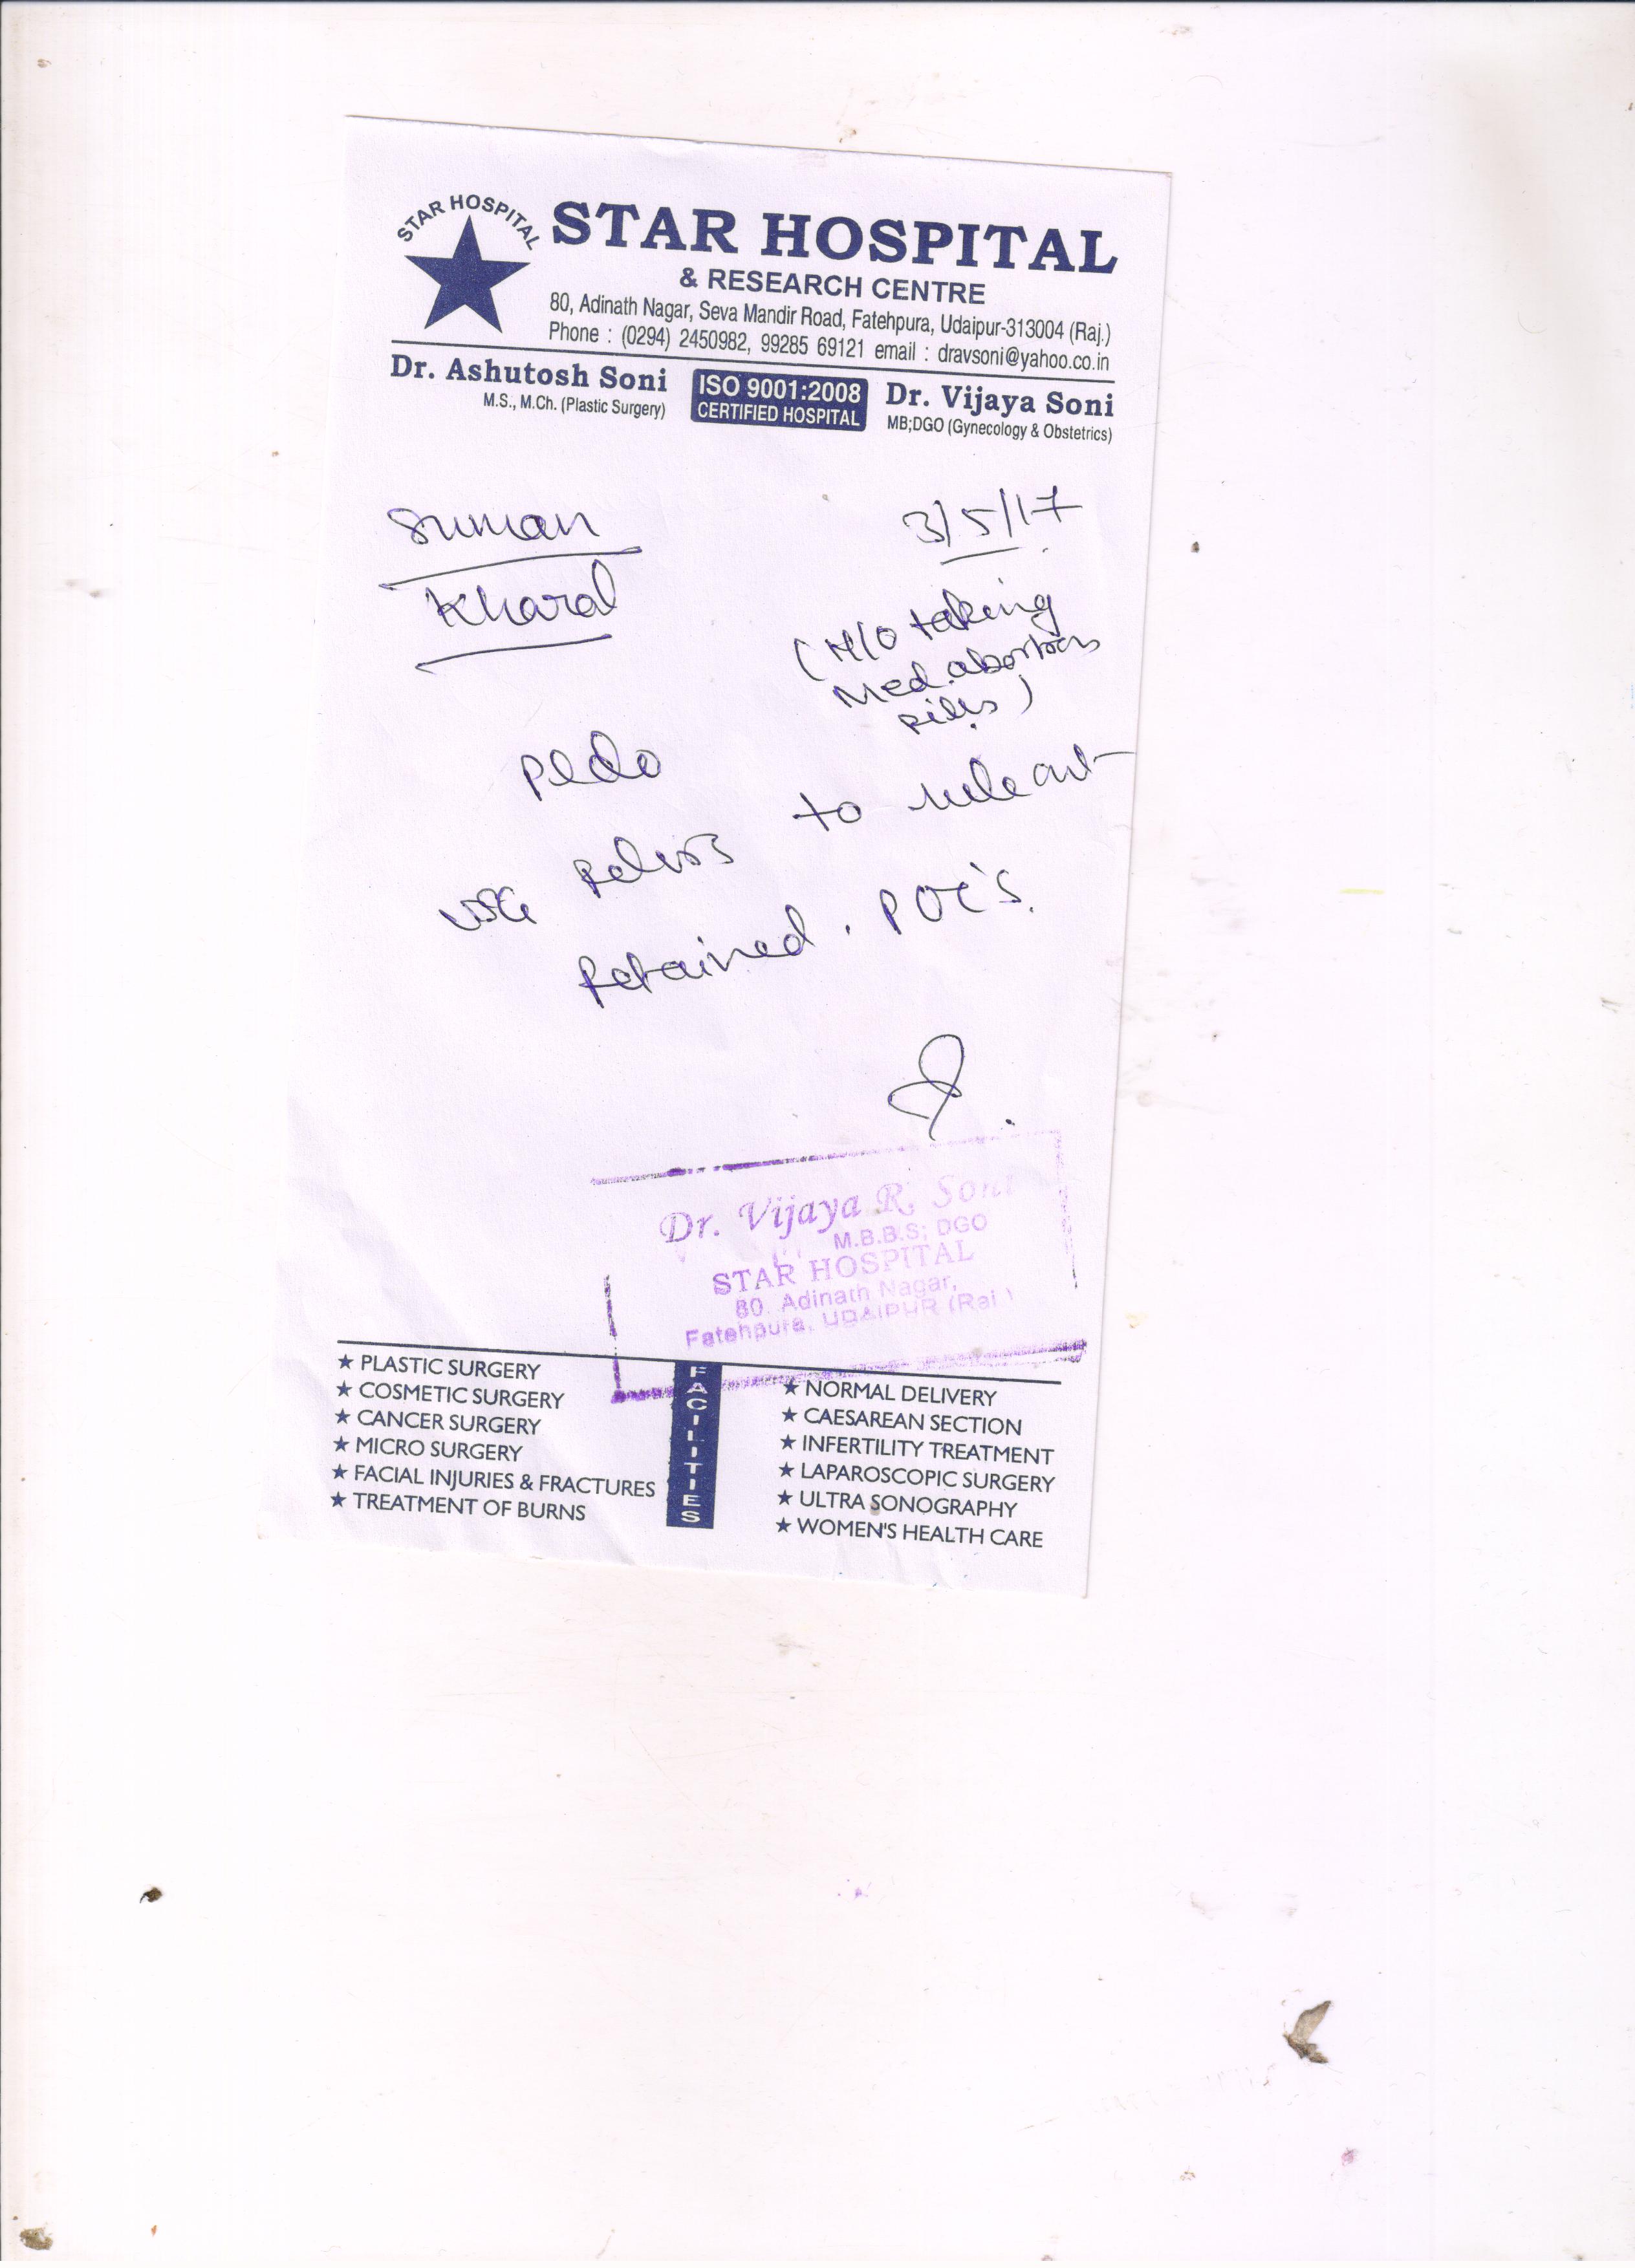 STAR HOSPITAL
STAR HOSPITAL
& RESEARCH CENTRE
80, Adinath Nagar, Seva Mandir Road, Fatehpura, Udaipur-313004 (Raj.)
Phone : (0294) 2450982, 99285 69121 email : dravsoni@yahoo.co.in
Dr. Ashutosh Soni
M.S., M.Ch. (Plastic Surgery)
ISO 9001:2008
CERTIFIED HOSPITAL
Dr. Vijaya Soni
MB;DGO (Gynecology & Obstetrics)
Suman
Kharol
3/5/17
(H/O taking
Med. abortion
pills)
Pl do
USG Pelvis to rule out
Retained. POC's.
Dr. Vijaya R. Soni
M.B.B.S; DGO
STAR HOSPITAL
80. Adinath Nagar,
Fatehpura, UDAIPUR (Raj.)
★ PLASTIC SURGERY
★ COSMETIC SURGERY
★ CANCER SURGERY
★ MICRO SURGERY
★ FACIAL INJURIES & FRACTURES
★ TREATMENT OF BURNS
FACILITIES
★ NORMAL DELIVERY
★ CAESAREAN SECTION
★ INFERTILITY TREATMENT
★ LAPAROSCOPIC SURGERY
★ ULTRA SONOGRAPHY
★ WOMEN'S HEALTH CARE